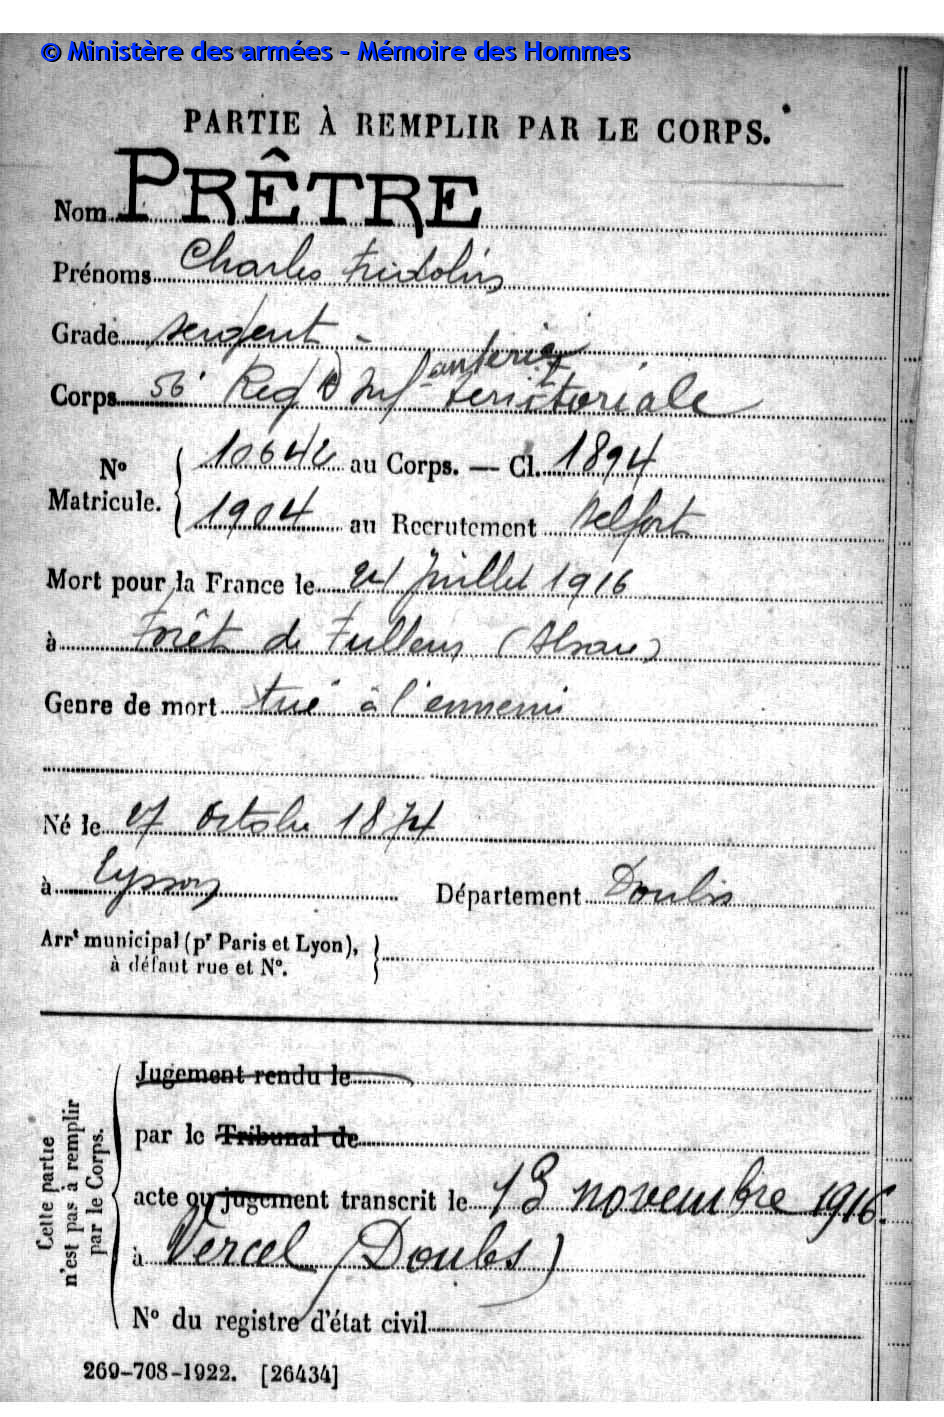 © Ministère des armées - Mémoire des Hommes
PARTIE À REMPLIR PAR LE CORPS.
Nom PRÊTRE
Prénoms Charles Fridolin
Grade sergent -
Corps 56e Reg D Infanterie territoriale
No Matricule. 10642 au Corps. — Cl. 1894
1904 au Recrutement Belfort
Mort pour la France le 21 Juillet 1916
à Forêt de (Alsace)
Genre de mort tué à l'ennemi
Né le 27 Octobre 1874
à Eysson Département Doubs
Arrt municipal (pr Paris et Lyon),
à défaut rue et No.
Cette partie
n'est pas à remplir
par le Corps.
Jugement rendu le
par le Tribunal de
acte ou jugement transcrit le 13 novembre 1916.
à Vercel (Doubs)
No du registre d'état civil
269-708-1922. [26434]